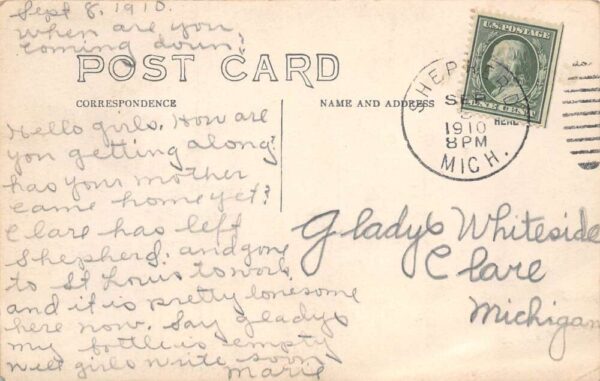 Sept 8, 1910.
when are you
coming down?
POST CARD
CORRESPONDENCE
NAME AND ADDRESS HERE
Hello girls. How are
you getting along?
has your mother
came home yet?
Clare has left
Shepherd. and gone
to St Louis to work
and it is pretty lonesome
here now. Say gladys
my bottle is empty
well girls write soon
Marie
U.S. POSTAGE
SEP
1910
8 PM
MICH.
Gladys Whiteside
Clare
Michigan